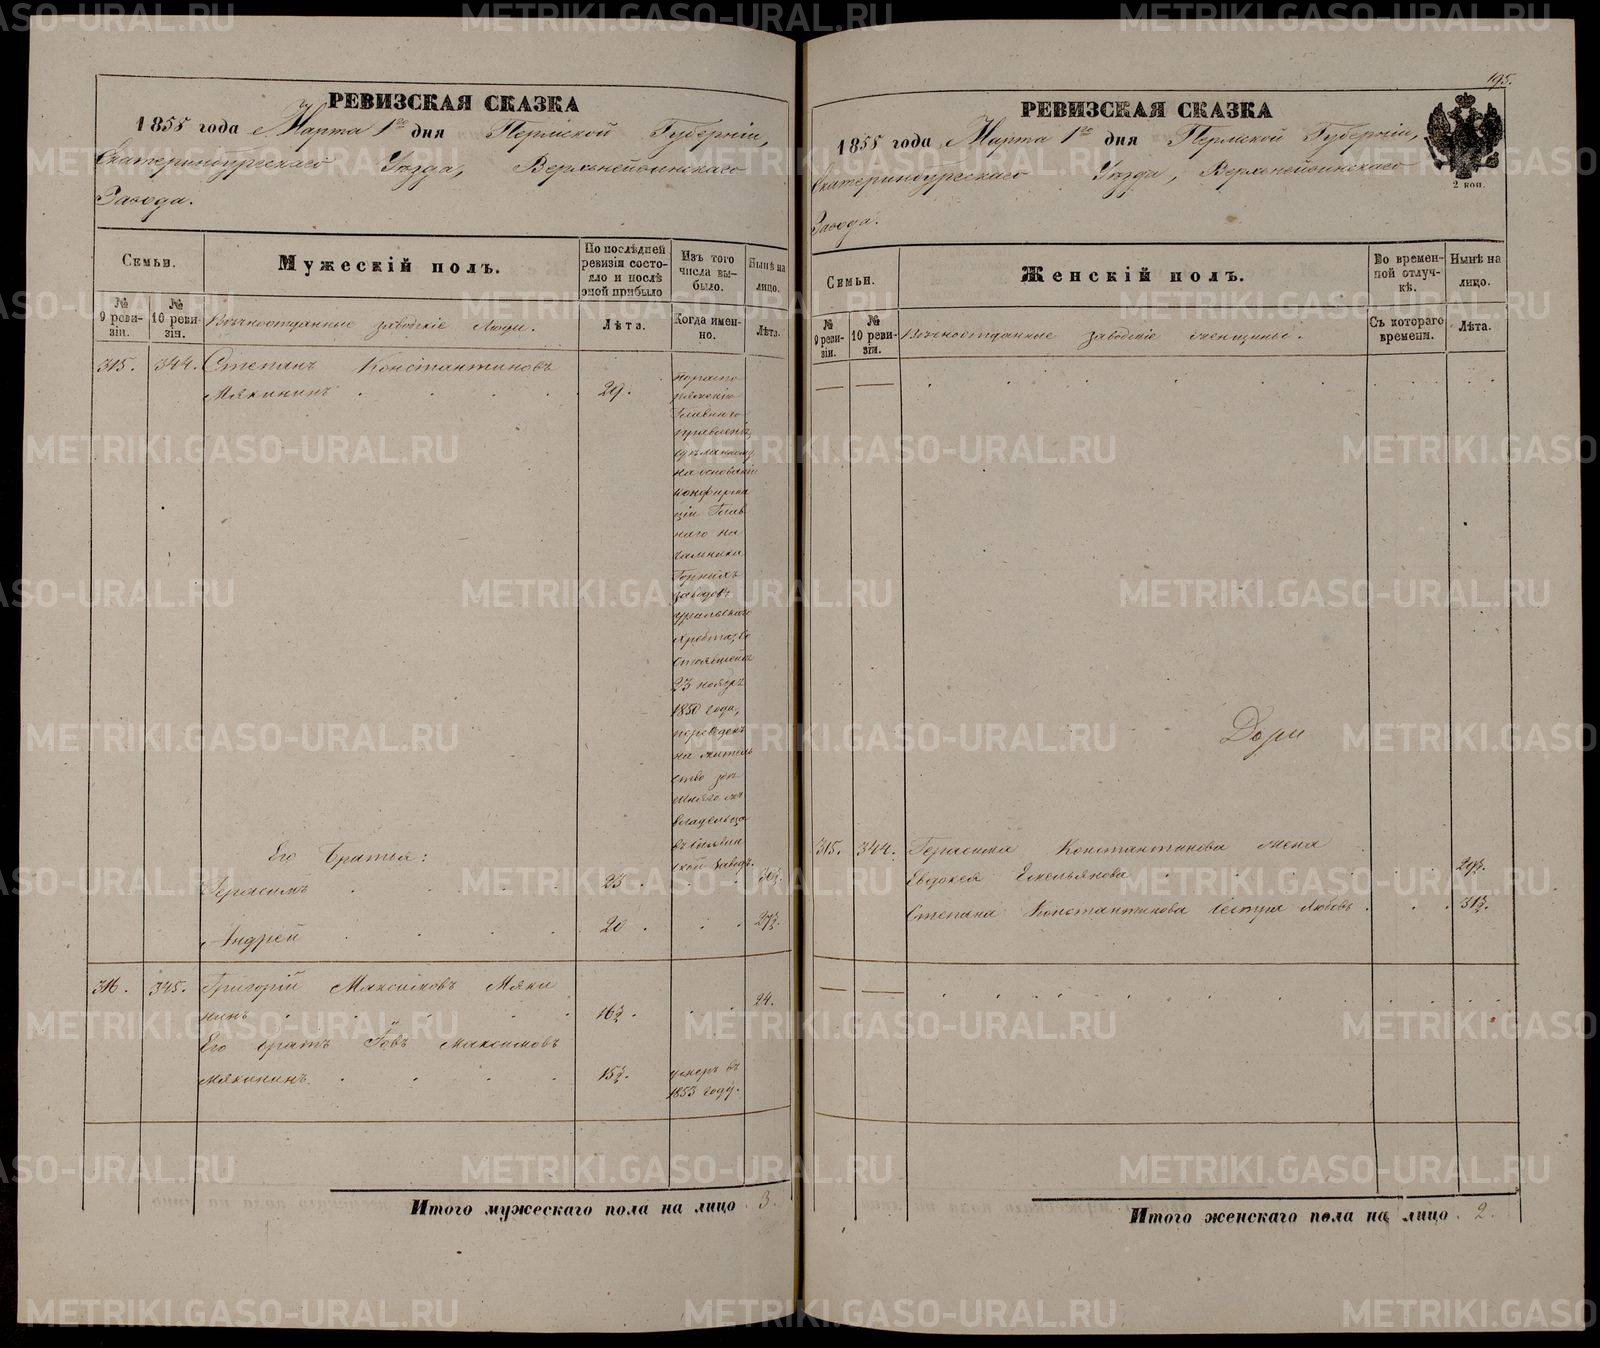 РЕВИЗСКАЯ СКАЗКА
1858 года Марта 1го дня Пермской Губерніи,
Екатеринбургскаго Уѣзда, Верхнейвинскаго
Завода.
Семьи.
Мужескій полъ.
По послѣдней ревизіи состояло и послѣ оной прибыло
Изъ того числа выбыло.
Нынѣ на лицо.
№ 9 ревизіи.
№ 10 ревизіи.
Вѣчноотданные заводскіе люди.
Лѣта.
Когда именно.
Лѣта.
315. 344. Степанъ Константиновъ
Мякининъ 29.
по распо
ряженію
Главнаго
правленія,
сдѣланному
на основаніи
конфирма
ціи Глав
наго на
чальника
Горныхъ
заводовъ
уральскаго
хребта, со
стоявшейся
23 ноября
1850 года,
переведенъ
на житель
ство
владельца
ской заводъ.
Его братья:
Герасимъ 23.
Андрей 20. 27½.
316. 345. Григорій Максимовъ Мяки
нинъ 16½. 24.
Его братъ Іовъ Максимовъ
Мякининъ. 15½. умеръ въ
1853 году.
Итого мужескаго пола на лицо 3.
195.
РЕВИЗСКАЯ СКАЗКА
1858 года Марта 1го дня Пермской Губерніи,
Екатеринбургскаго Уѣзда, Верхнейвинскаго
Завода.
2 коп.
Семьи.
Женскій полъ.
Во временной отлучкѣ.
Нынѣ на лицо.
№ 9 ревизіи.
№ 10 ревизіи.
Вѣчноотданные заводскіе женщины.
Съ котораго времени.
Лѣта.
315. 344. Герасима Константинова жена
Евдокея Емельянова 29½.
Степана Константинова сестра Любовь 31½.
Итого женскаго пола на лицо 2.
METRIKI.GASO-URAL.RU